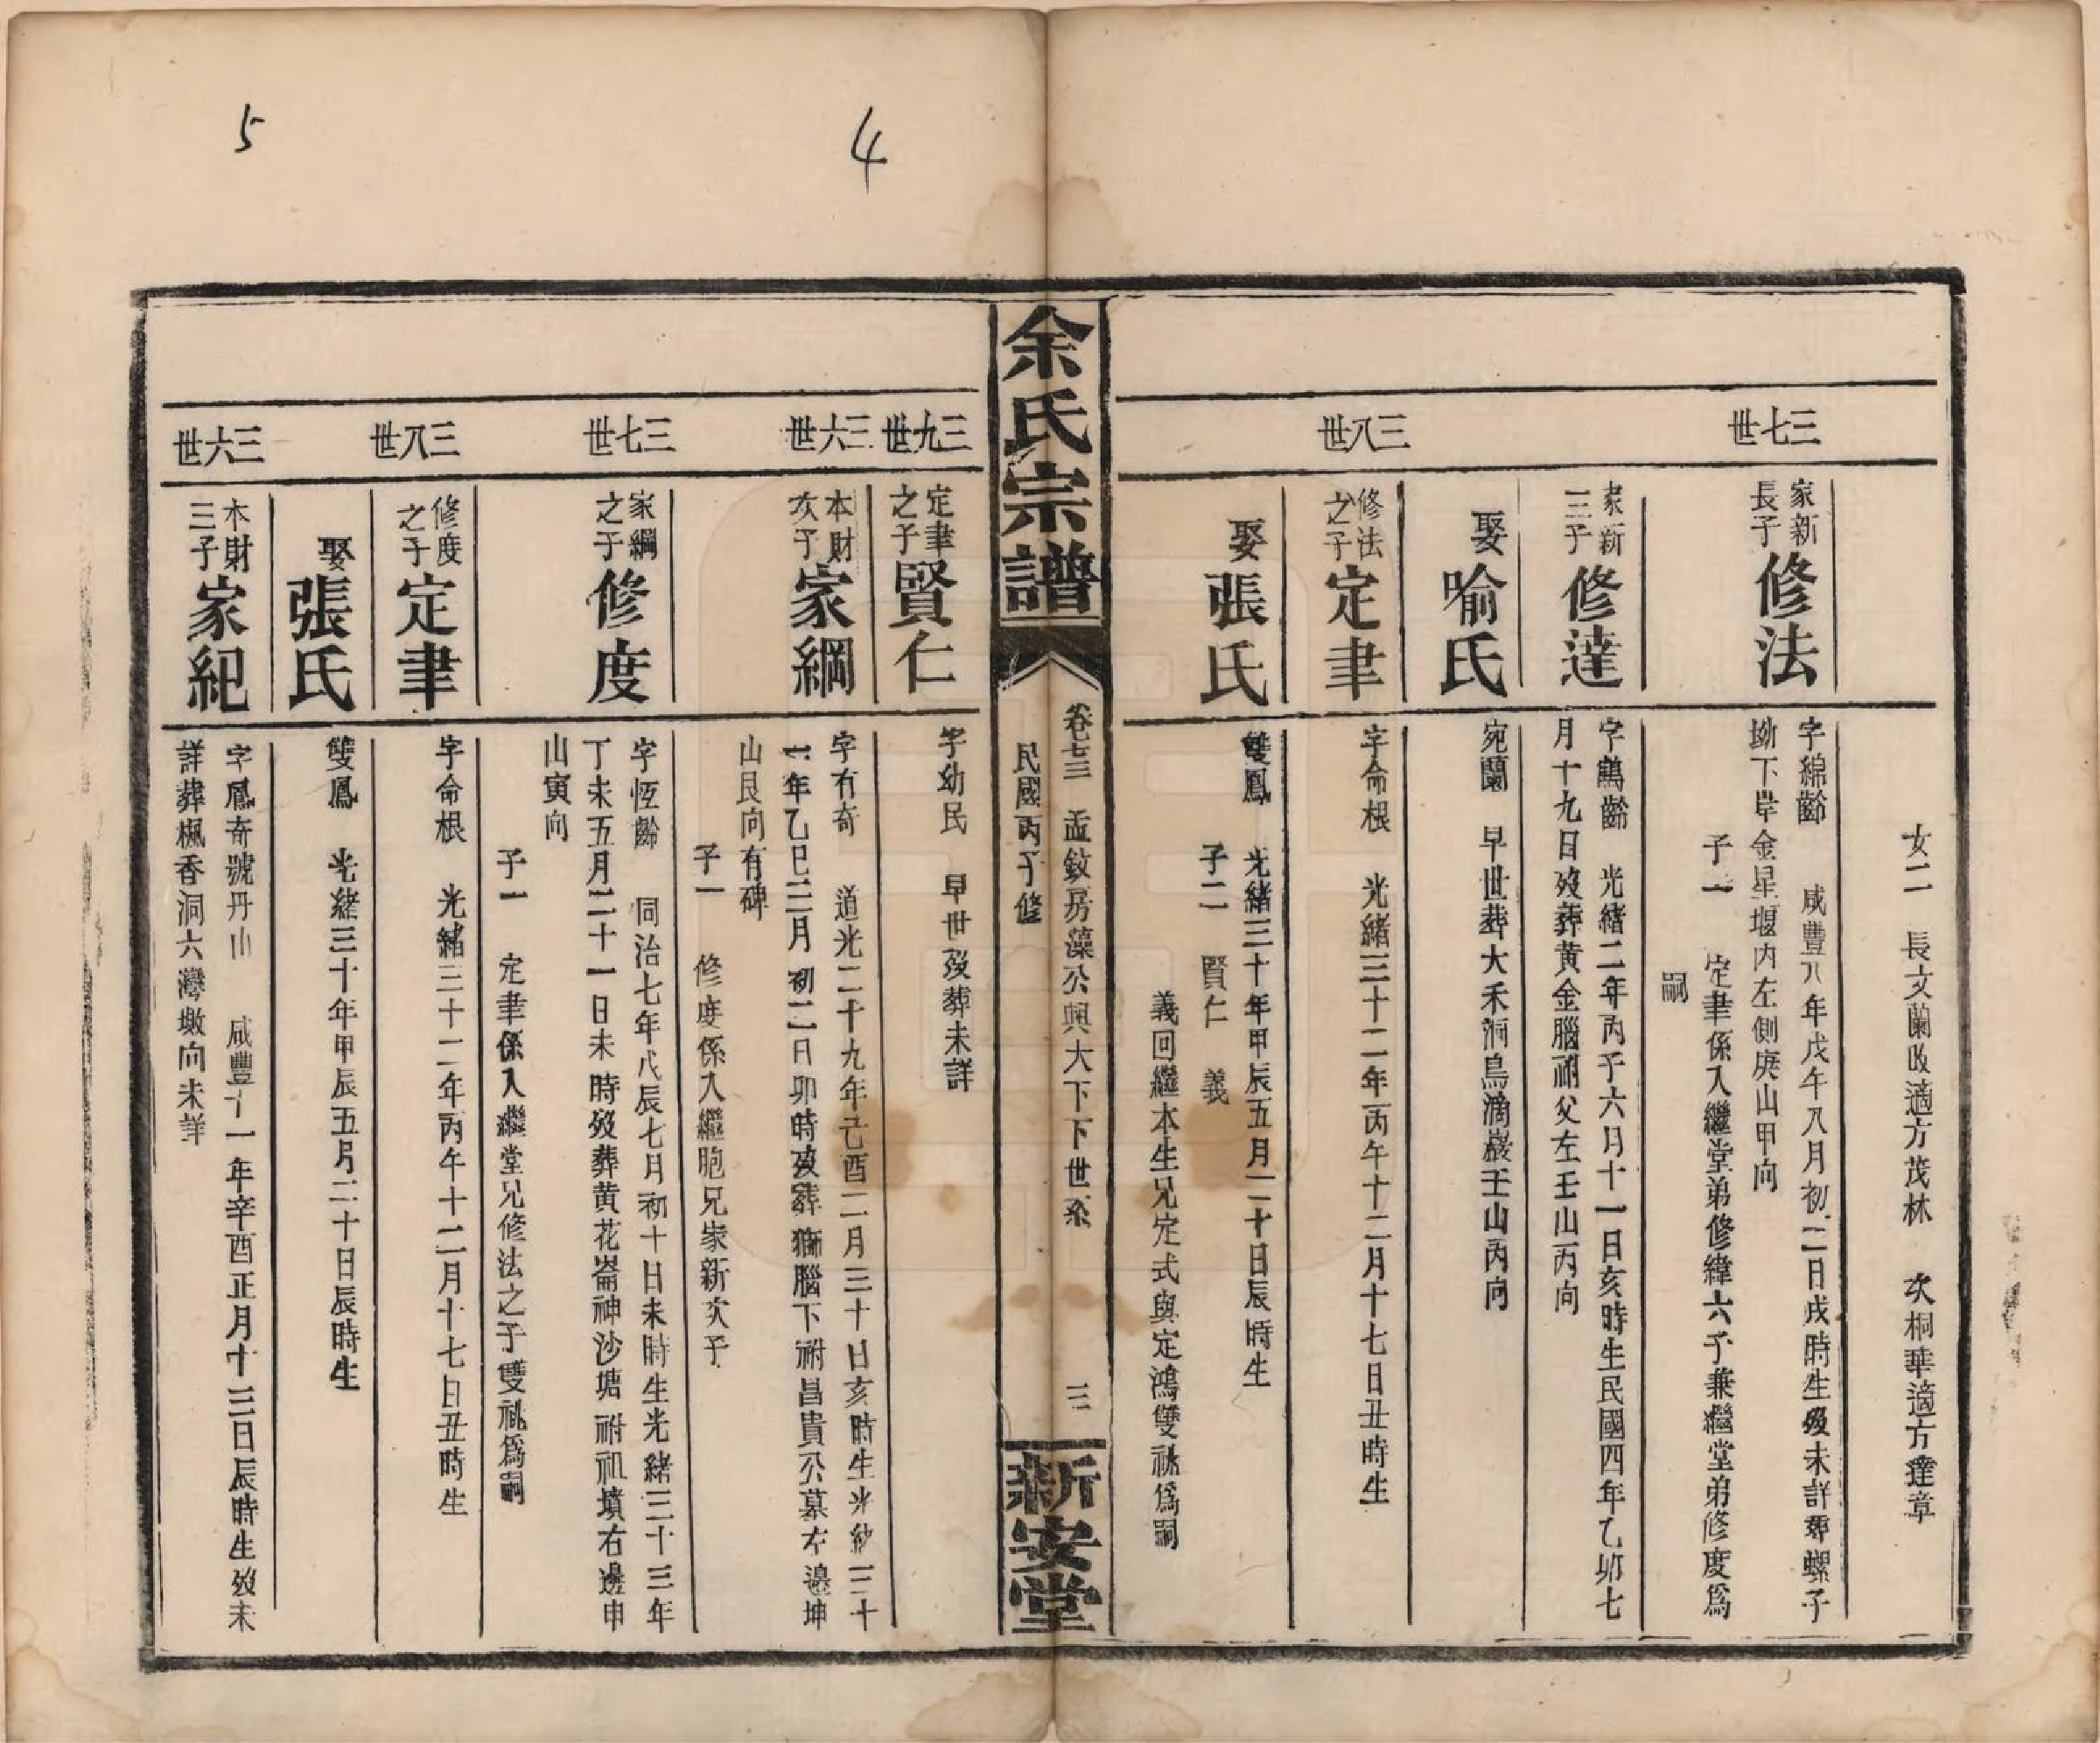 女二　長文蘭改適方茂林　次桐華適方達章
三七世
家新長子　修法
字綿齡　咸豐八年戊午八月初二日戌時生歿未詳葬螺子
坳下岸金星堰內左側庚山甲向
子一　定聿係入繼堂弟修緯六子兼繼堂弟修度爲
嗣
家新三子　修達
字鶴齡　光緒二年丙子六月十一日亥時生民國四年乙卯七
月十九日歿葬黃金腦祔父左壬山丙向
娶喻氏
宛蘭　早世葬大禾洞鳥滴巖壬山丙向
三八世
修法之子　定聿
字命根　光緒三十二年丙午十二月十七日丑時生
娶張氏
雙鳳　光緒三十年甲辰五月二十日辰時生
子二　賢仁　義
義回繼本生兄定式與定鴻雙祧爲嗣
余氏宗譜
卷七三　孟敘房藻公興大下下世系　三
民國丙子修
新安堂
三九世
定聿之子　賢仁
字幼民　早世歿葬未詳
三六世
本財次子　家綱
字有奇　道光二十九年己酉二月三十日亥時生光緒三十
一年乙巳三月初二日卯時歿葬獅腦下祔昌貴公墓左邊坤
山艮向有碑
子一　修度係入繼胞兄家新次子
三七世
家綱之子　修度
字恆齡　同治七年戊辰七月初十日未時生光緒三十三年
丁未五月二十一日未時歿葬黃花崙神沙塘祔祖墳右邊申
山寅向
子一　定聿係入繼堂兄修法之子雙祧爲嗣
三八世
修度之子　定聿
字命根　光緒三十二年丙午十二月十七日丑時生
娶張氏
雙鳳　光緒三十年甲辰五月二十日辰時生
三六世
本財三子　家紀
字鳳奇號丹山　咸豐十一年辛酉正月十三日辰時生歿未
詳葬楓香洞六灣墩向未詳
4
5